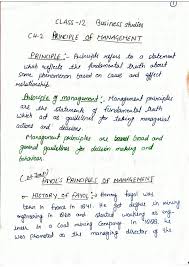 ①
CLASS-12 Business studies
CH-2 PRINCIPLE OF MANAGEMENT
PRINCIPLE :- Principle refers to a statement
which reflects the fundamental truth about
some phenomenon based on cause and effect
relationship.
Principle of management :- Management principles
are the statements of fundamental truth
which act as guidelines for taking managerial
actions and decisions.
Management principles are broad and
general guidelines for decision making and
behaviour.
FAYOL'S PRINCIPLE OF MANAGEMENT
HISTORY OF FAYOL :- Henry Fayol was
born in France in 1841. He got degree in mining
engineering in 1860 and started working as eng-
ineer in a Coal mining Company. In 1888, he
was promoted as the managing director of the